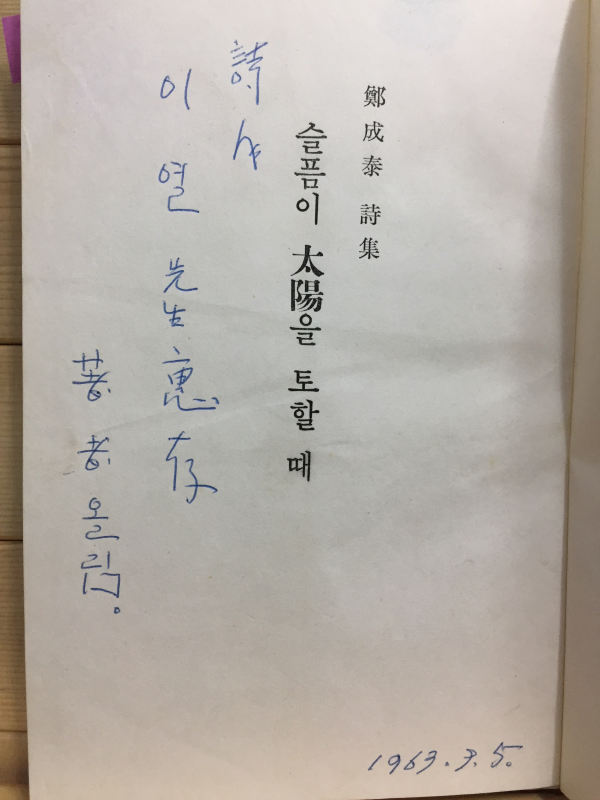 鄭成泰 詩集
슬픔이 太陽을 토할 때
詩人
이열 先生 惠存
著者 올림.
1963. 3. 5.